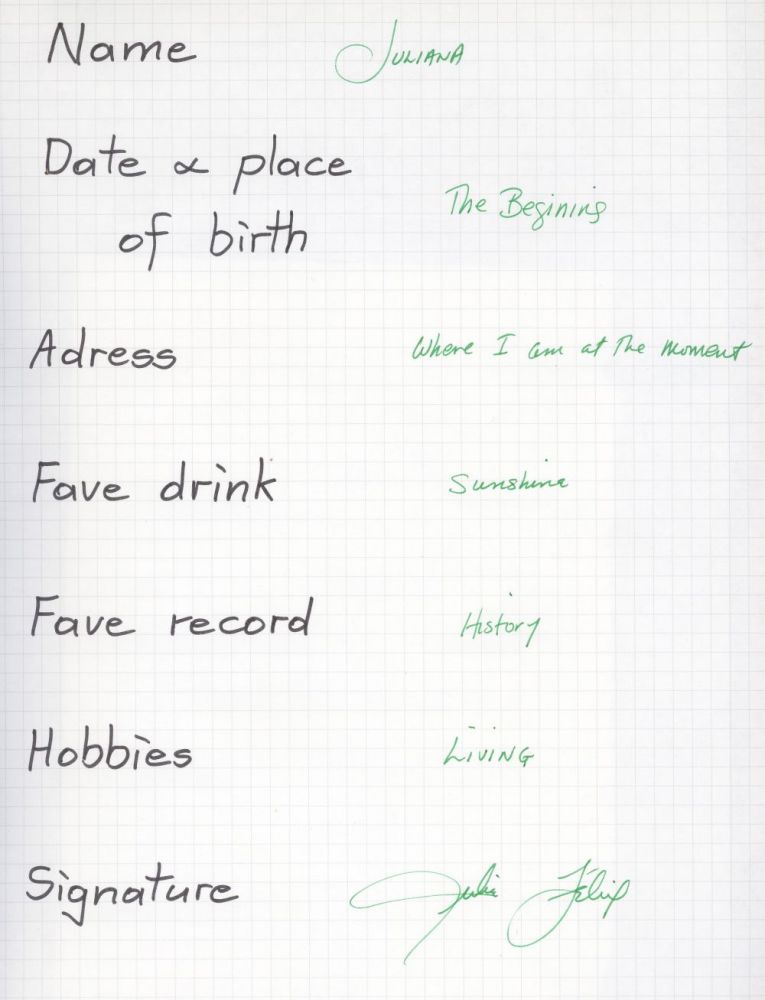 Name JULIANA
Date & place
The Begining
of birth
Adress Where I am at The moment
Fave drink Sunshine
Fave record History
Hobbies LIVING
Signature Julia Felix